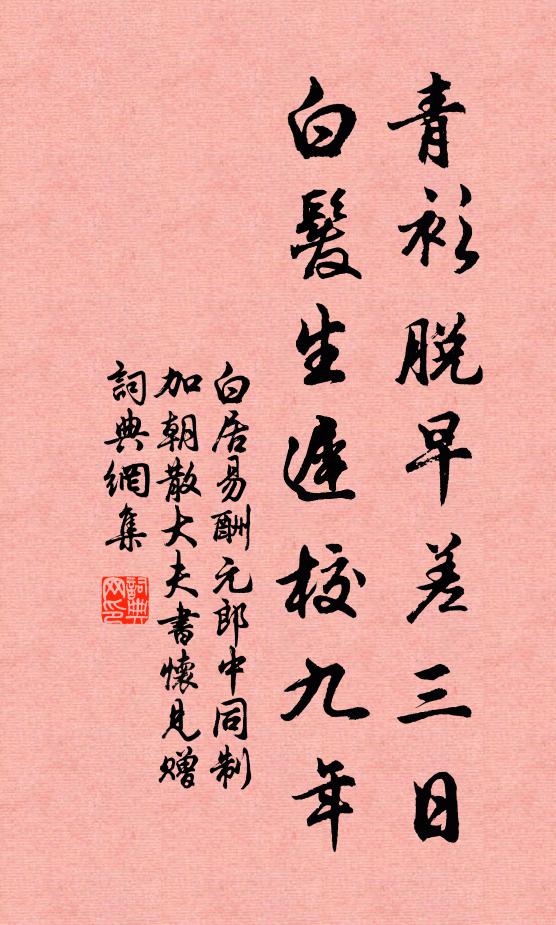 青衫脱早差三日
白髮生遲校九年
白居易酬元郎中同制
加朝散大夫書懷見贈
詞典網集
詞典网印